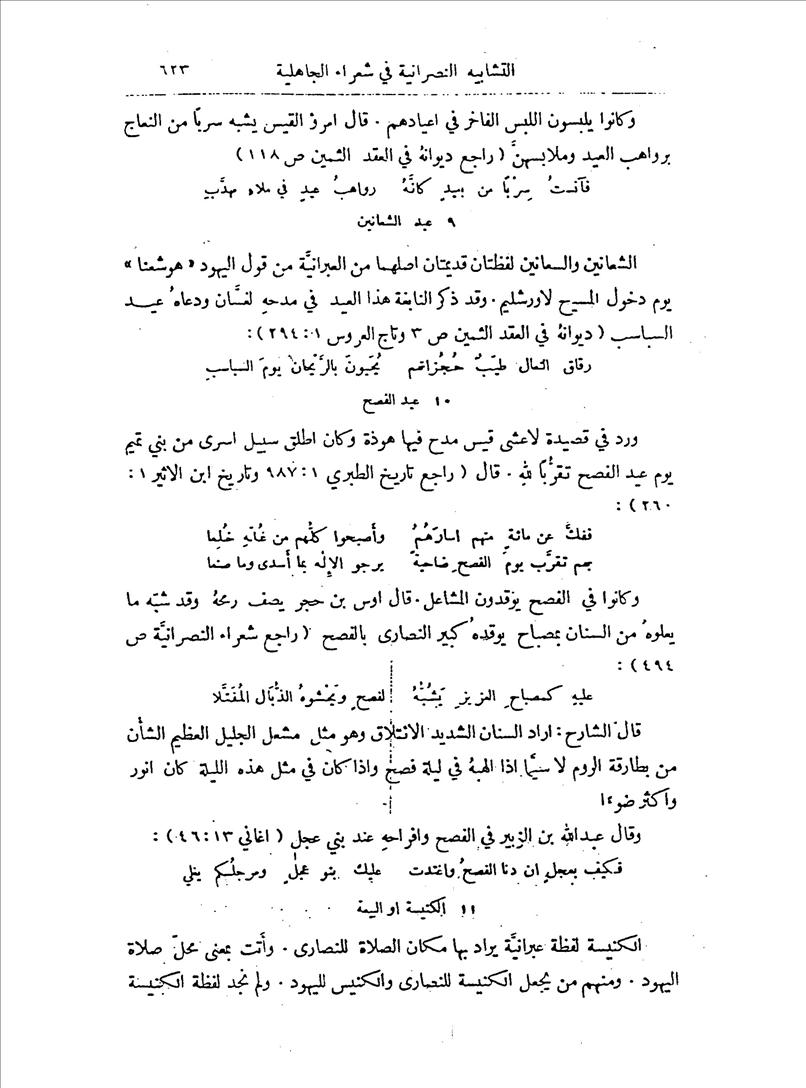 التشابيه النصرانية في شعراء الجاهلية ٦٢٣
وكانوا يلبسون اللبس الفاخر في اعيادهم . قال امرؤ القيس يشبه سرباً من النعاج
برواهب العيد وملابسهنَّ ( راجع ديوانهُ في العقد الثمين ص ١١٨ )
فآنستُ سِرْباً من بعيدٍ كأنَّهُ رواهبُ عيدٍ في ملاءٍ مهدَّبِ
٩ عيد الشعانين
الشعانين والسعانين لفظتان قديمتان اصلهما من العبرانيَّة من قول اليهود « هوشعنا »
يوم دخول المسيح لاورشليم . وقد ذكر النابغة هذا العيد في مدحهِ لغسَّان ودعاهُ عيد
السباسب ( ديوانهُ في العقد الثمين ص ٣ وتاج العروس ١ : ٢٩٤ ) :
رقاق النعال طيّبٌ حُجُزاتهم يُحيَّونَ بالرَّيْحان يومَ السباسبِ
١٠ عيد الفصح
ورد في قصيدة لاعشى قيس مدح فيها هوذة وكان اطلق سبيل اسرى من بني تميم
يوم عيد الفصح تقرُّباً للهِ . قال ( راجع تاريخ الطبري ١ : ٩٨٧ وتاريخ ابن الاثير ١ :
٢٦٠ ) :
ففكَّ عن مائةٍ منهم اسارَهُمُ وأصبحوا كلُّهم من غُلّهِ خُلِعا
بهم تقرَّب يومَ الفصحِ ضاحيةً يرجو الإلٰه بما أسدى وما صنعا
وكانوا في الفصح يوقدون المشاعل . قال اوس بن حجر يصف رمحهُ وقد شبَّه ما
يعلوهُ من السنان بمصباح يوقدهُ كبير النصارى بالفصح ( راجع شعراء النصرانيَّة ص
٤٩٤ ) :
عليهِ كمصباحِ العزيزِ يَشُبُّهُ لفصحٍ ويَحْشوهُ الذُّبَال المُفَتَّلا
قال الشارح : اراد السنان الشديد الائتلاق وهو مثل مشعل الجليل العظيم الشأن
من بطارقة الروم لا سيَّما اذا الهبهُ في ليلة فصحٍ واذا كان في مثل هذه الليلة كان انور
واكثر ضوءًا
وقال عبدالله بن الزبير في الفصح وافراحهِ عند بني عجل ( اغاني ١٣ : ٤٦ ) :
فكيف بعجلٍ ان دنا الفصحُ واغتدت عليك بنو عجلٍ ومرجلُكم يغلي
١١ الكنيسة او البيعة
الكنيسة لفظة عبرانيَّة يراد بها مكان الصلاة للنصارى . وأتت بمعنى محلّ صلاة
اليهود . ومنهم من يجعل الكنيسة للنصارى والكنيس لليهود . ولم نجد لفظة الكنيسة